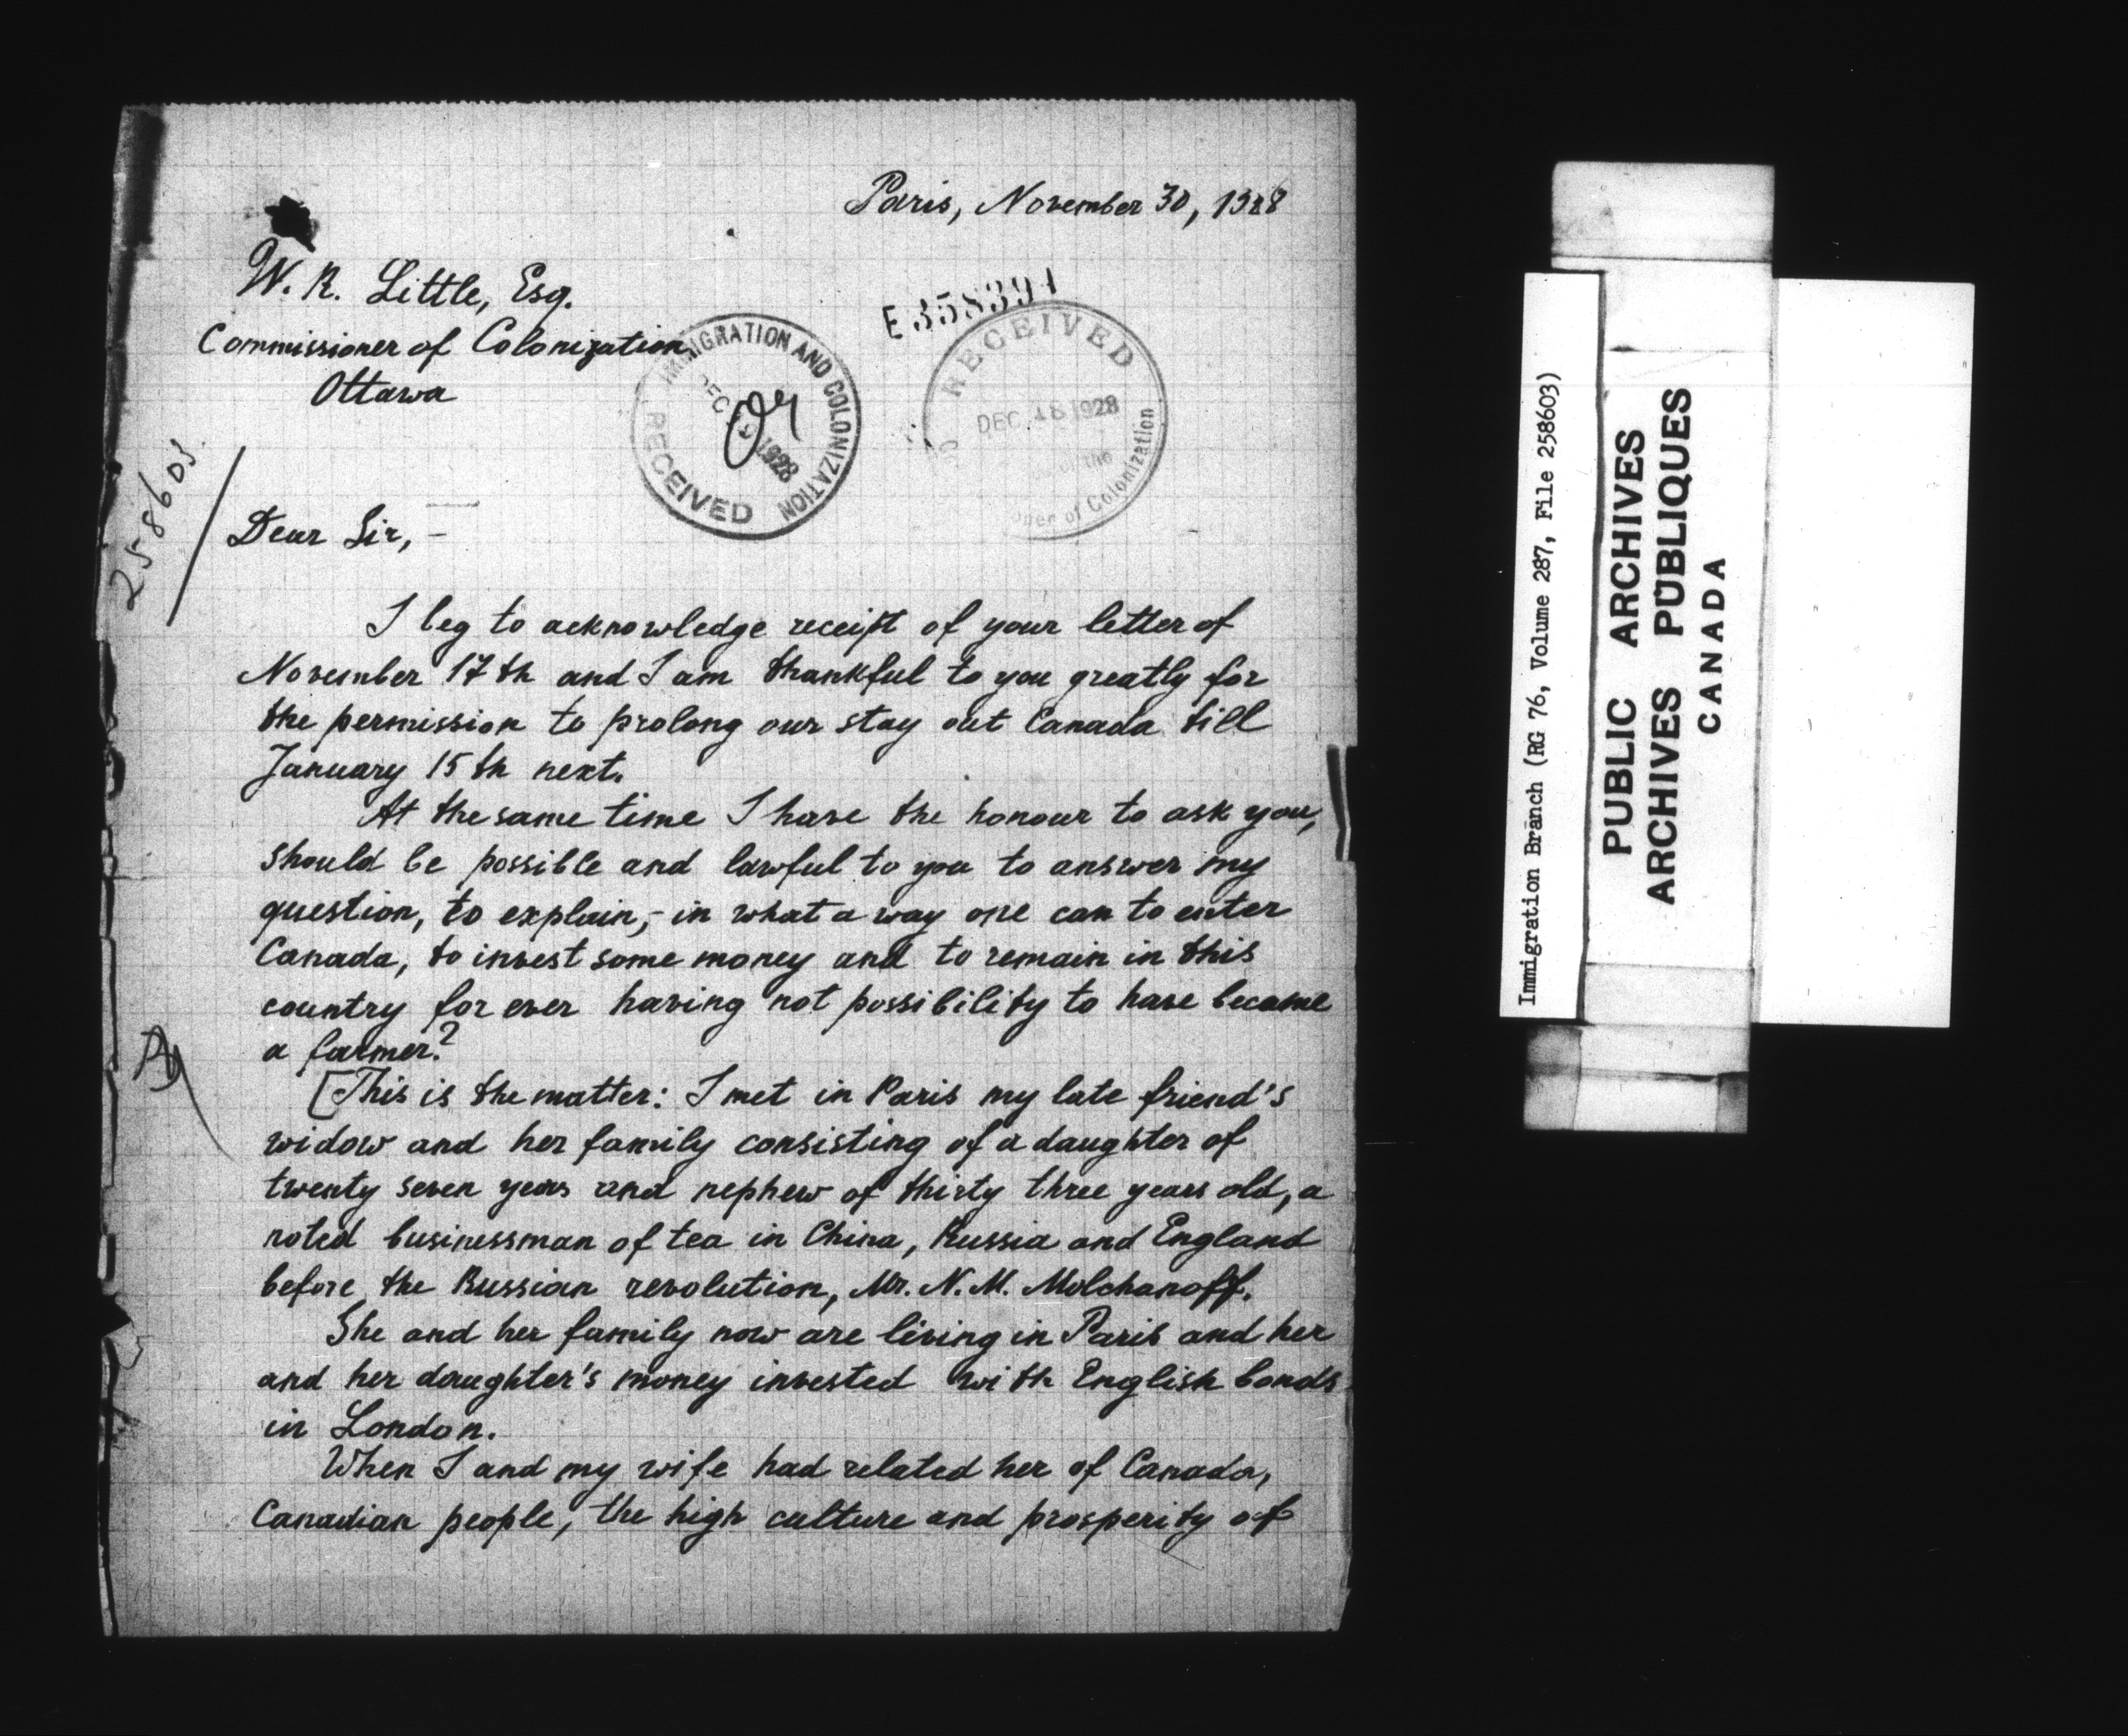 Paris, November 30, 1928
W. R. Little, Esq.
Commissioner of Colonization
Ottawa
E358391
IMMIGRATION AND COLONIZATION
DEC 19 1928
RECEIVED
RECEIVED
DEC. 18 1928
of the
of Colonization
258603
Dear Sir, -
I beg to acknowledge receipt of your letter of
November 17th and I am thankful to you greatly for
the permission to prolong our stay out Canada till
January 15th next.
At the same time I have the honour to ask you,
should be possible and lawful to you to answer my
question, to explain, - in what a way one can to enter
Canada, to invest some money and to remain in this
country for ever having not possibility to have became
a farmer?
[This is the matter: I met in Paris my late friend's
widow and her family consisting of a daughter of
twenty seven years and nephew of thirty three years old, a
noted businessman of tea in China, Russia and England
before the Russian revolution, Mr. N. M. Molchanoff.
She and her family now are living in Paris and her
and her daughter's money invested with English bonds
in London.
When I and my wife had related her of Canada,
Canadian people, the high culture and prosperity of
Immigration Branch (RG 76, Volume 287, File 258603)
PUBLIC ARCHIVES
ARCHIVES PUBLIQUES
CANADA